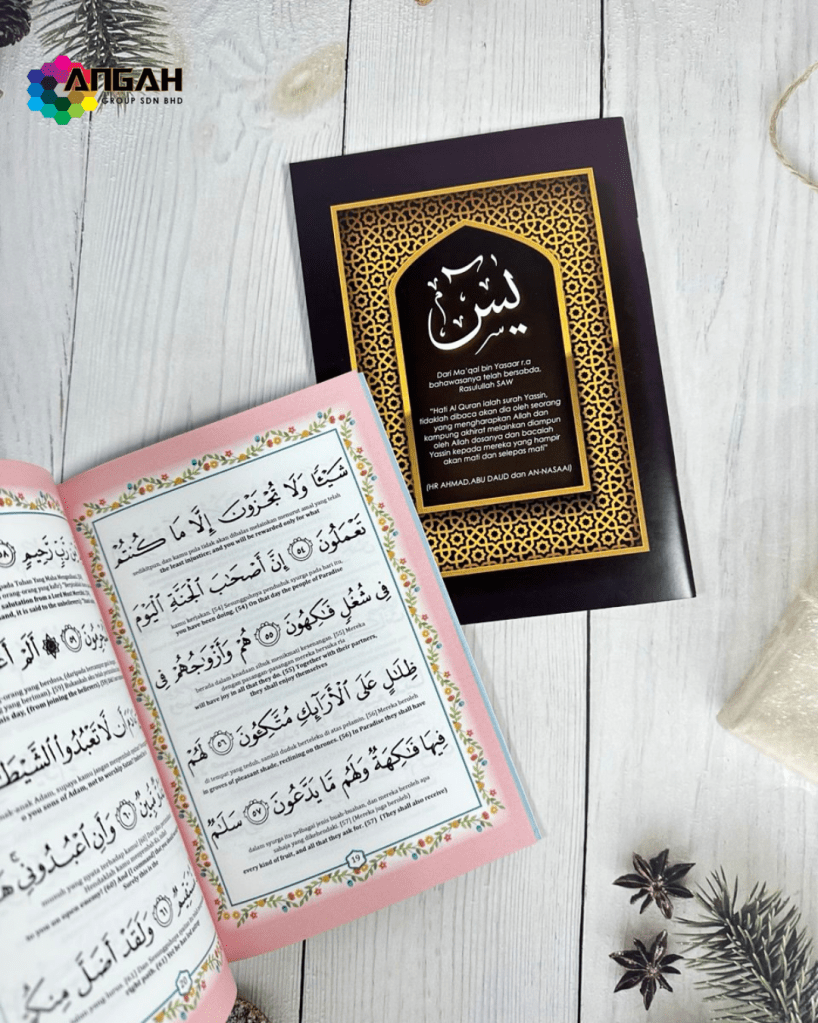 ANGAH
GROUP SDN BHD
يس
Dari Ma'qal bin Yasaar r.a
bahawasanya telah bersabda,
Rasulullah SAW
"Hati Al Quran ialah surah Yassin,
tidaklah dibaca akan dia oleh seorang
yang mengharapkan Allah dan
kampung akhirat melainkan diampun
oleh Allah dosanya dan bacalah
Yassin kepada mereka yang hampir
akan mati dan selepas mati"
(HR AHMAD,ABU DAUD dan AN-NASAAI)
شَيْئًا وَلَا تُجْزَوْنَ إِلَّا مَا كُنتُمْ
sedikitpun, dan kamu pula tidak akan dibalas melainkan menurut amal yang telah
the least injustice; and you will be rewarded only for what
تَعْمَلُونَ ٥٤ إِنَّ أَصْحَٰبَ الْجَنَّةِ الْيَوْمَ
kamu kerjakan. [54] Sesungguhnya penduduk syurga pada hari itu,
you have been doing. (54) On that day the people of Paradise
فِى شُغُلٍ فَٰكِهُونَ ٥٥ هُمْ وَأَزْوَٰجُهُمْ فِى
berada dalam keadaan sibuk menikmati kesenangan. [55] Mereka
dengan pasangan-pasangan mereka bersuka ria
will have joy in all that they do. (55) Together with their partners,
they shall enjoy themselves
ظِلَٰلٍ عَلَى الْأَرَآئِكِ مُتَّكِـُٔونَ ٥٦ لَهُمْ
di tempat yang teduh, sambil duduk berteleku di atas pelamin. [56] Mereka beroleh
in groves of pleasant shade, reclining on thrones. (56) In Paradise they shall have
فِيهَا فَٰكِهَةٌ وَلَهُم مَّا يَدَّعُونَ ٥٧ سَلَٰمٌ
dalam syurga itu pelbagai jenis buah-buahan, dan mereka beroleh apa
sahaja yang dikehendaki. [57] (Mereka juga beroleh)
every kind of fruit, and all that they ask for. (57) (They shall also receive)
19
رَّبٍّ رَّحِيمٍ ٥٨
Tuhan Yang Maha Mengasihani.
salutation from a Lord Most Merciful.
٥٩ أَلَمْ
this day, (from joining the believers).
أَن لَّا تَعْبُدُوا الشَّيْطَٰ
anak-anak Adam, supaya kamu jangan menyembah
you sons of Adam, not to worship
مُّبِينٌ ٦٠ وَأَنِ اعْبُدُونِى
musuh yang nyata terhadap kamu!
Hendaklah kamu menyembah
Surely this is the
٦١ وَلَقَدْ أَضَلَّ مِنكُ
right path. (61)
20